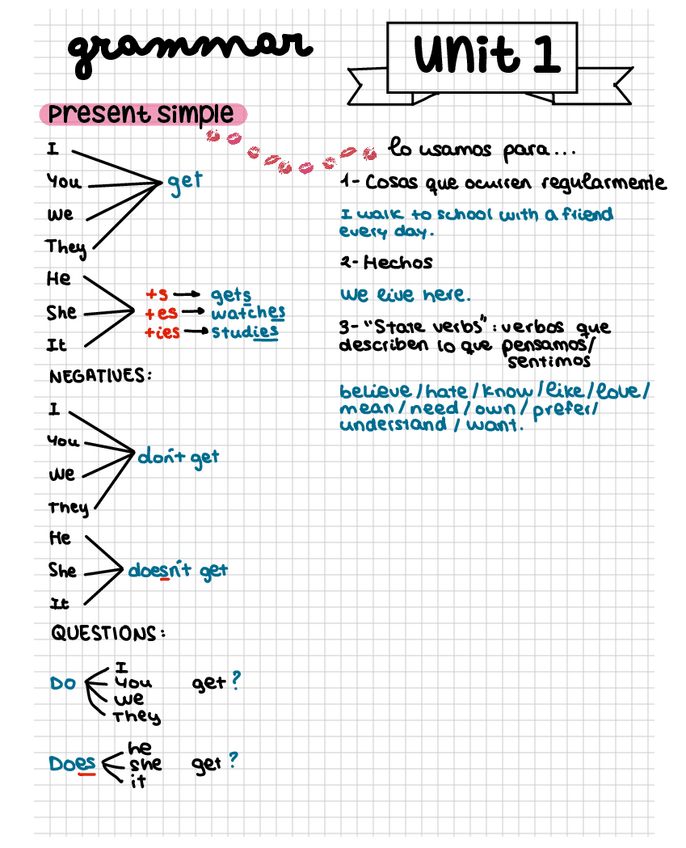 grammar
Unit 1
Present simple
I
You
We
They
get
He
She
It
+s → gets
+es → watches
+ies → studies
NEGATIVES:
I
You
We
They
don't get
He
She
It
doesn't get
QUESTIONS:
Do
I
You
We
They
get ?
Does
he
she
it
get ?
lo usamos para...
1- Cosas que ocurren regularmente
I walk to school with a friend
every day.
2- Hechos
We live here.
3- "State verbs": verbos que
describen lo que pensamos/
sentimos
believe/hate/know/like/love/
mean/need/own/prefer/
understand/want.